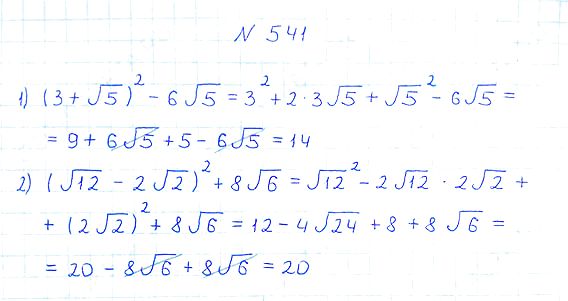 N 541
1) (3 + √5)² - 6√5 = 3² + 2 · 3√5 + √5² - 6√5 =
= 9 + 6√5 + 5 - 6√5 = 14
2) (√12 - 2√2)² + 8√6 = √12² - 2√12 · 2√2 +
+ (2√2)² + 8√6 = 12 - 4√24 + 8 + 8√6 =
= 20 - 8√6 + 8√6 = 20